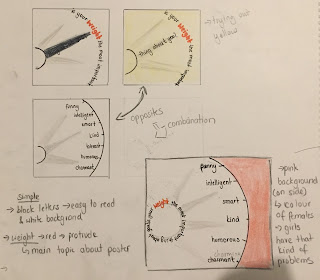 is your weight the most important
is your weight
thing about you?
→ trying out
yellow
funny
intelligent
smart
kind
honest
humorous
charmant
opposites
combination
simple
→ block letters → easy to read
& white background
→ weight → red → protrude
↳ main topic about poster
weight the most
funny
intelligent
smart
kind
humorous
charmant
→ pink
background
(on side)
↳ colour
of females
→ girls
have that
kind of
problems